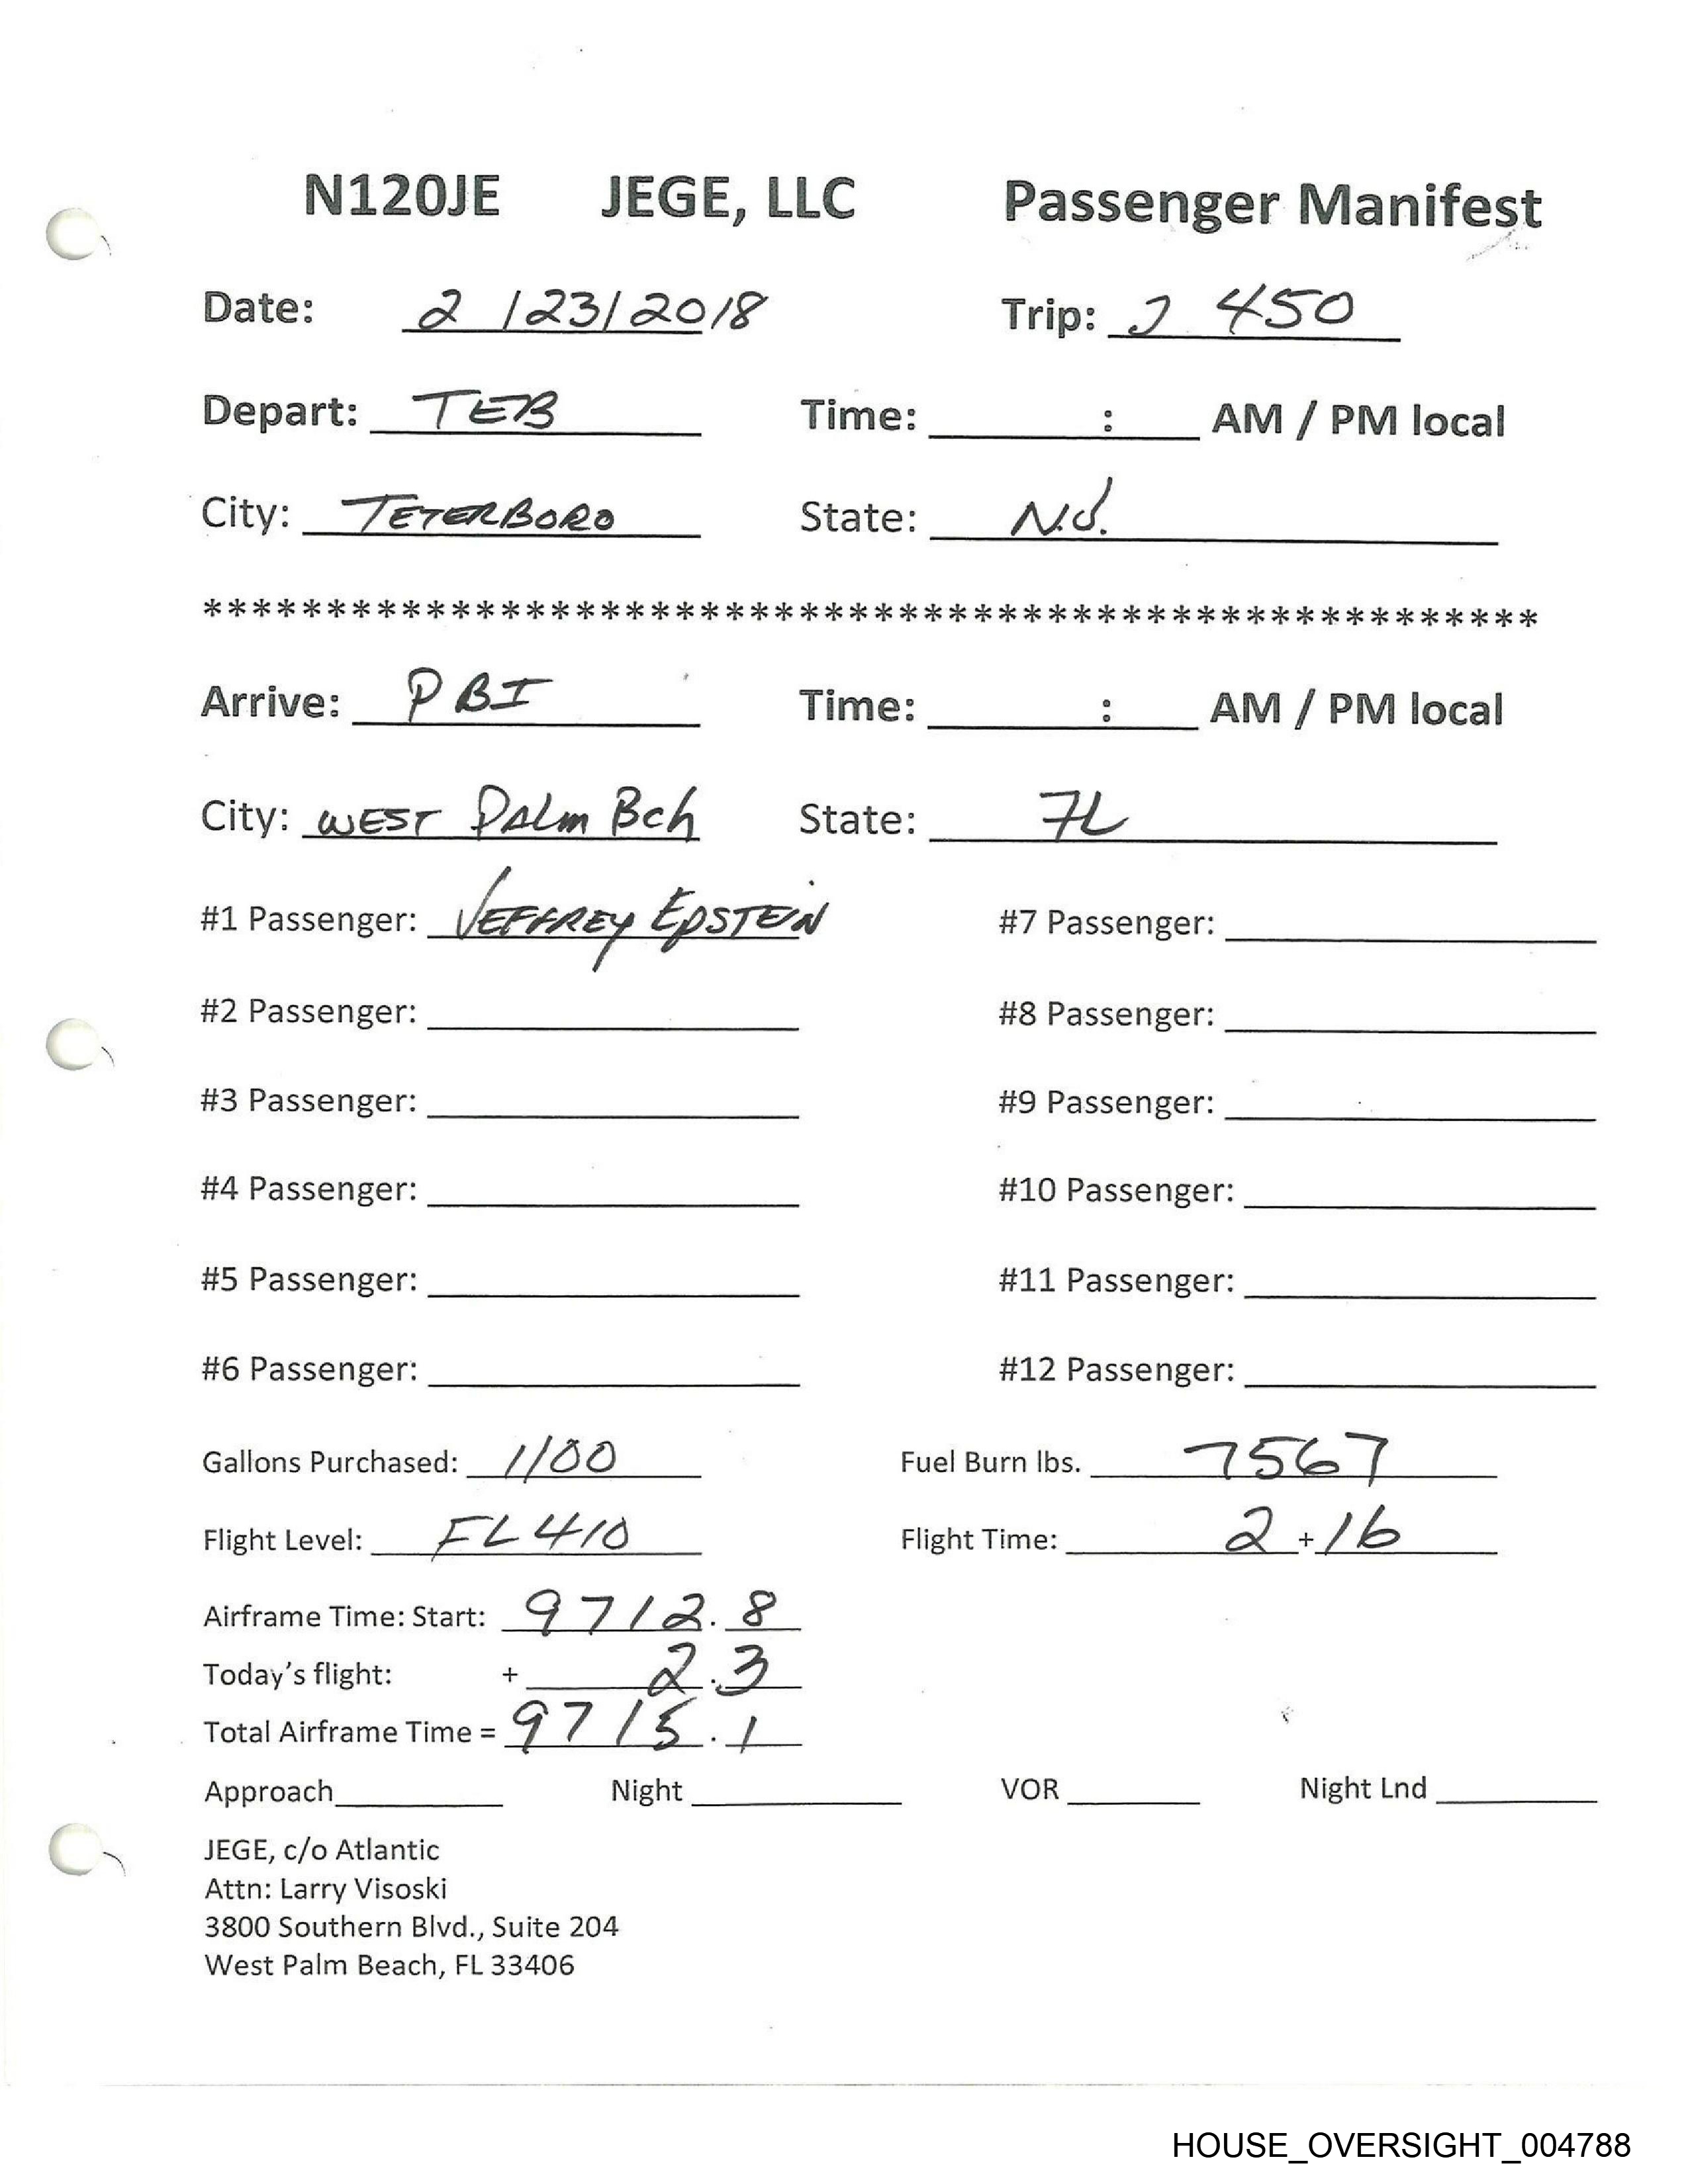 N120JE JEGE, LLC Passenger Manifest
Date: 2 / 23 / 2018 Trip: J 450
Depart: TEB Time: : AM / PM local
City: TETERBORO State: N.J.
******************************************************
Arrive: PBI Time: : AM / PM local
City: WEST PALM Bch State: FL
#1 Passenger: JEFFREY EPSTEIN #7 Passenger:
#2 Passenger: #8 Passenger:
#3 Passenger: #9 Passenger:
#4 Passenger: #10 Passenger:
#5 Passenger: #11 Passenger:
#6 Passenger: #12 Passenger:
Gallons Purchased: 1100 Fuel Burn lbs. 7567
Flight Level: FL410 Flight Time: 2 + 16
Airframe Time: Start: 9712.8
Today's flight: + 2.3
Total Airframe Time = 9715.1
Approach Night VOR Night Lnd
JEGE, c/o Atlantic
Attn: Larry Visoski
3800 Southern Blvd., Suite 204
West Palm Beach, FL 33406
HOUSE_OVERSIGHT_004788